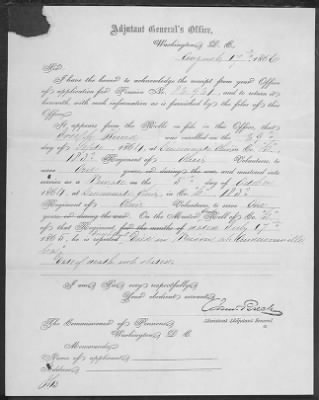 Adjutant General's Office,
Washington, D. C.
August 17th, 1866
Sir:
I have the honor to acknowledge the receipt from your Office
of application for Pension No. and to return it
herewith, with such information as is furnished by the files of this
Office.
It appears from the Rolls on file in this Office, that
was enrolled on the
day of Sept, 1864, at in Co.
182d Regiment of Ohio Volunteers, to serve
One years, or during the war, and mustered into
service as a Private on the 5th day of October
1864, at in Co. 182d
Regiment of Ohio Volunteers, to serve One
years, or during the war. On the Muster Roll of Co.
of that Regiment for the months of dated July 7th
1865, he is reported "Died in Prison at Andersonville
Date of death not stated.
I am, Sir, very respectfully,
Your obedient servant,
Assistant Adjutant General.
The Commissioner of Pensions,
Washington, D. C.
Memoranda:
Name of applicant,
Address,